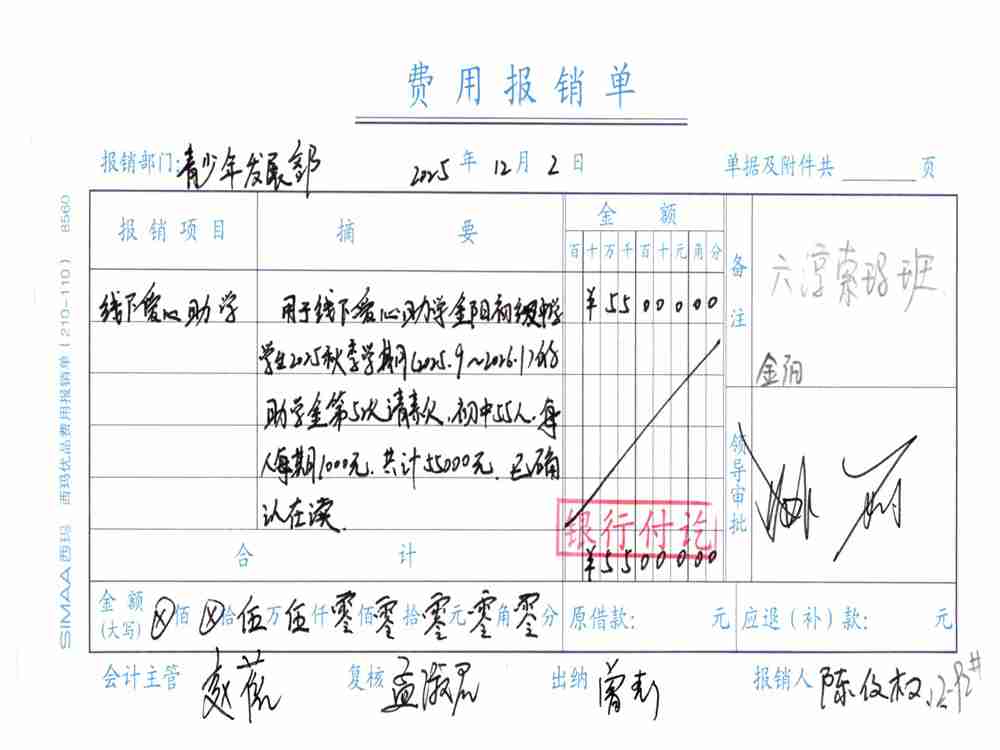 费用报销单
报销部门:青少年发展部 2025年12月2日 单据及附件共 页
报销项目 摘要 金额 备注
百十万千百十元角分
六淳索玛班
金阳
线下爱心助学 用于线下爱心助学金阳初级中学 ¥5500000
学生2025秋季学期(2025.9~2026.1)的
助学金第5次请款,初中55人,每
人每期1000元,共计55000元,已确
认在读.
领导审批
银行付讫
合计 ¥5500000
金额(大写) ⊗佰⊗拾伍万伍仟零佰零拾零元零角零分 原借款: 元 应退(补)款: 元
会计主管 复核 孟淑君 出纳 曾彭 报销人 陈伎权 12-92#
SIMAA西玛 西玛优品费用报销单(210-110) 8560